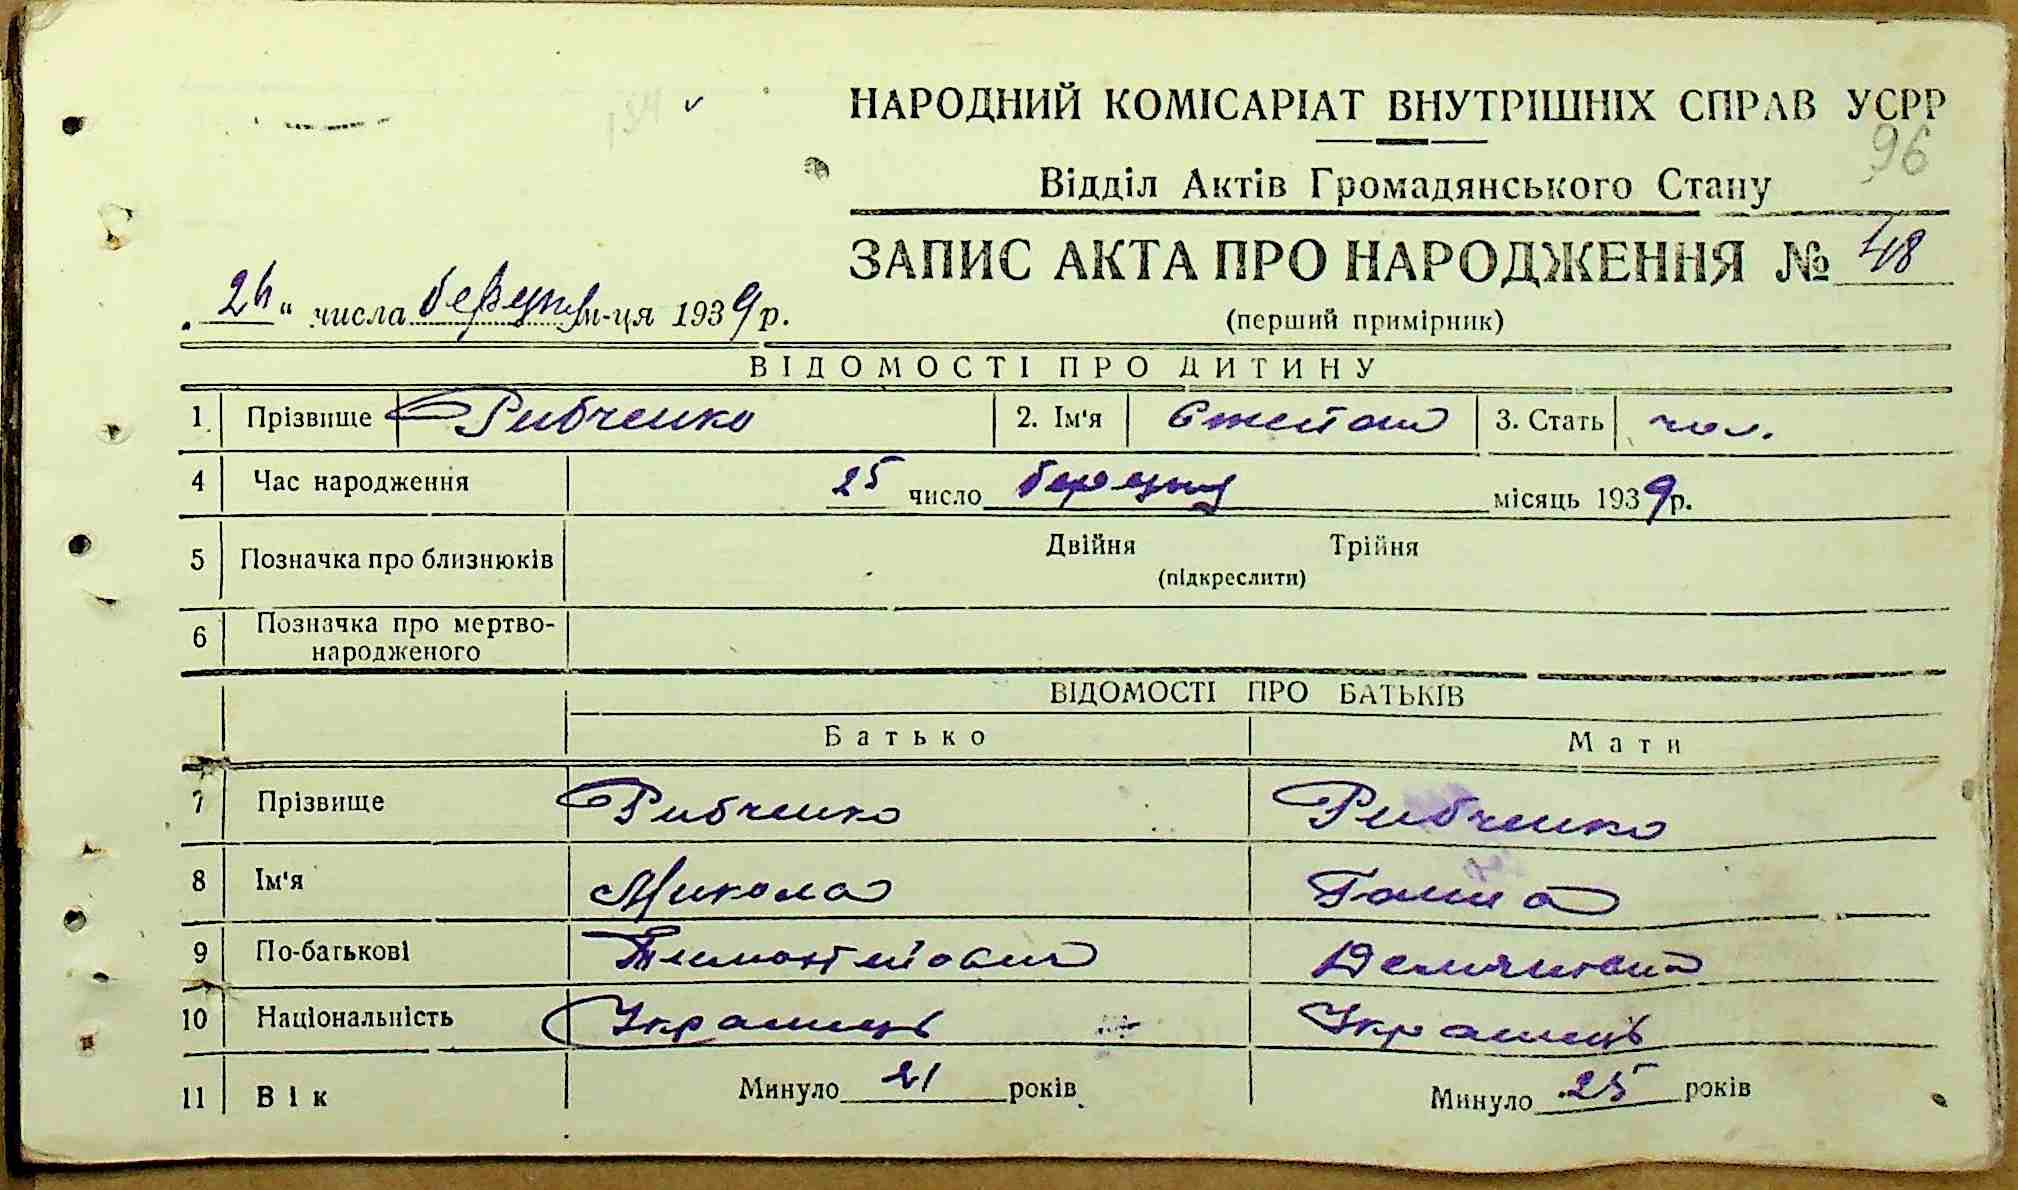 НАРОДНИЙ КОМІСАРІАТ ВНУТРІШНІХ СПРАВ УСРР
96
Відділ Актів Громадянського Стану
ЗАПИС АКТА ПРО НАРОДЖЕННЯ № 48
„26“ числа березня м-ця 1939 р.
(перший примірник)
ВІДОМОСТІ ПРО ДИТИНУ
1. Прізвище Рибченко 2. Ім'я Степан 3. Стать чол.
4 Час народження 25 число березня місяць 1939 р.
5 Позначка про близнюків Двійня Трійня
(підкреслити)
6 Позначка про мертво-
народженого
ВІДОМОСТІ ПРО БАТЬКІВ
Батько Мати
7 Прізвище Рибченко Рибченко
8 Ім'я Микола Ганна
9 По-батькові Тимофійович
10 Національність Українець Українець
11 Вік Минуло 21 років Минуло 25 років